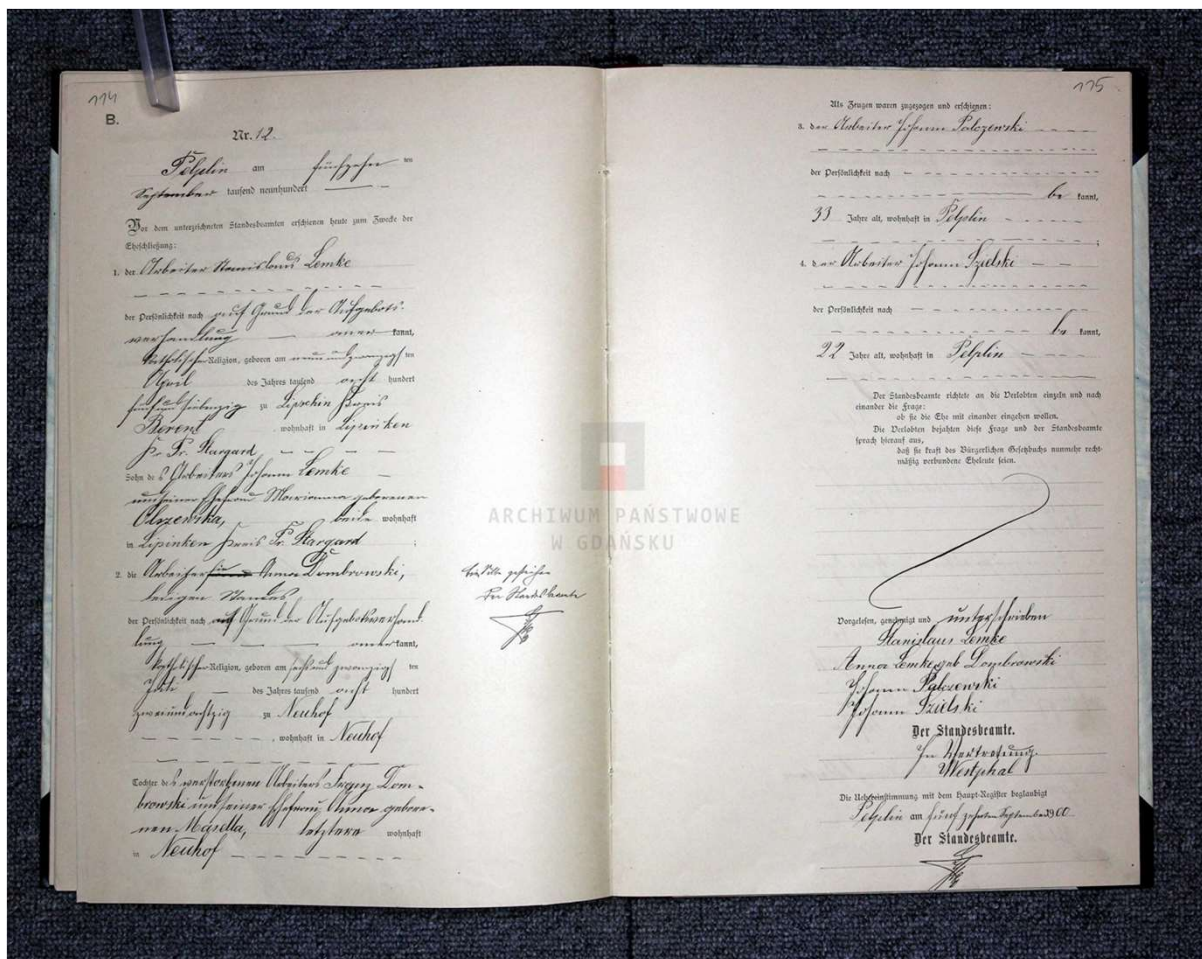 114
B.
Nr. 12.
Pelplin am fünfzehn ten
September tausend neunhundert
Vor dem unterzeichneten Standesbeamten erschienen heute zum Zwecke der
Eheschließung:
1. der Arbeiter Stanislaus Lemke
der Persönlichkeit nach auf Grund der Aufgebots-
verhandlung aner kannt,
katholischer Religion, geboren am neunundzwanzigs ten
April des Jahres tausend acht hundert
fünfundsiebenzig zu Lipschin Kreis
Berent, wohnhaft in Lipinken
Kr. Pr. Stargard,
Sohn des Arbeiters Johann Lemke
und seiner Ehefrau Marianna geborenen
Olszewska, beide wohnhaft
in Lipinken Kreis Pr. Stargard;
2. die Arbeiterin Anna Dombrowski,
ledigen Standes,
der Persönlichkeit nach auf Grund der Aufgebotsverhand
lung aner kannt,
katholischer Religion, geboren am sechsundzwanzigs ten
Juli des Jahres tausend acht hundert
zweiundachtzig zu Neuhof
, wohnhaft in Neuhof
Tochter des verstorbenen Arbeiters Franz Dom-
browski und seiner Ehefrau Anna gebore-
nen Masella, letztere wohnhaft
in Neuhof
Eine Silbe gestrichen
Der Standesbeamte
115
Als Zeugen waren zugezogen und erschienen:
3. der Arbeiter Johann Palczewski
der Persönlichkeit nach
be kannt,
33 Jahre alt, wohnhaft in Pelplin
;
4. der Arbeiter Johann Szielski
der Persönlichkeit nach
be kannt,
22 Jahre alt, wohnhaft in Pelplin
Der Standesbeamte richtete an die Verlobten einzeln und nach
einander die Frage:
ob sie die Ehe mit einander eingehen wollen.
Die Verlobten bejahten diese Frage und der Standesbeamte
sprach hierauf aus,
daß sie kraft des Bürgerlichen Gesetzbuchs nunmehr recht-
mäßig verbundene Eheleute seien.
Vorgelesen, genehmigt und unterschrieben
Stanislaus Lemke
Anna Lemke geb Dombrowski
Johann Palczewski
Johann Szielski
Der Standesbeamte.
In Vertretung.
Westphal
Die Uebereinstimmung mit dem Haupt-Register beglaubigt
Pelplin am fünfzehnten September 1900
Der Standesbeamte.
ARCHIWUM PAŃSTWOWE
W GDAŃSKU